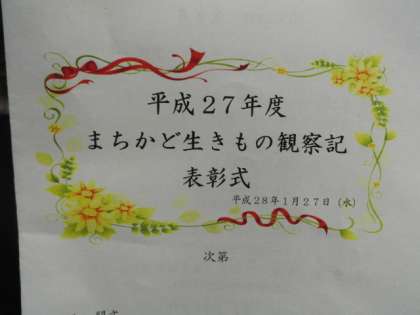 平成２７年度
まちかど生きもの観察記
表彰式
平成２８年１月２７日（水）
次第